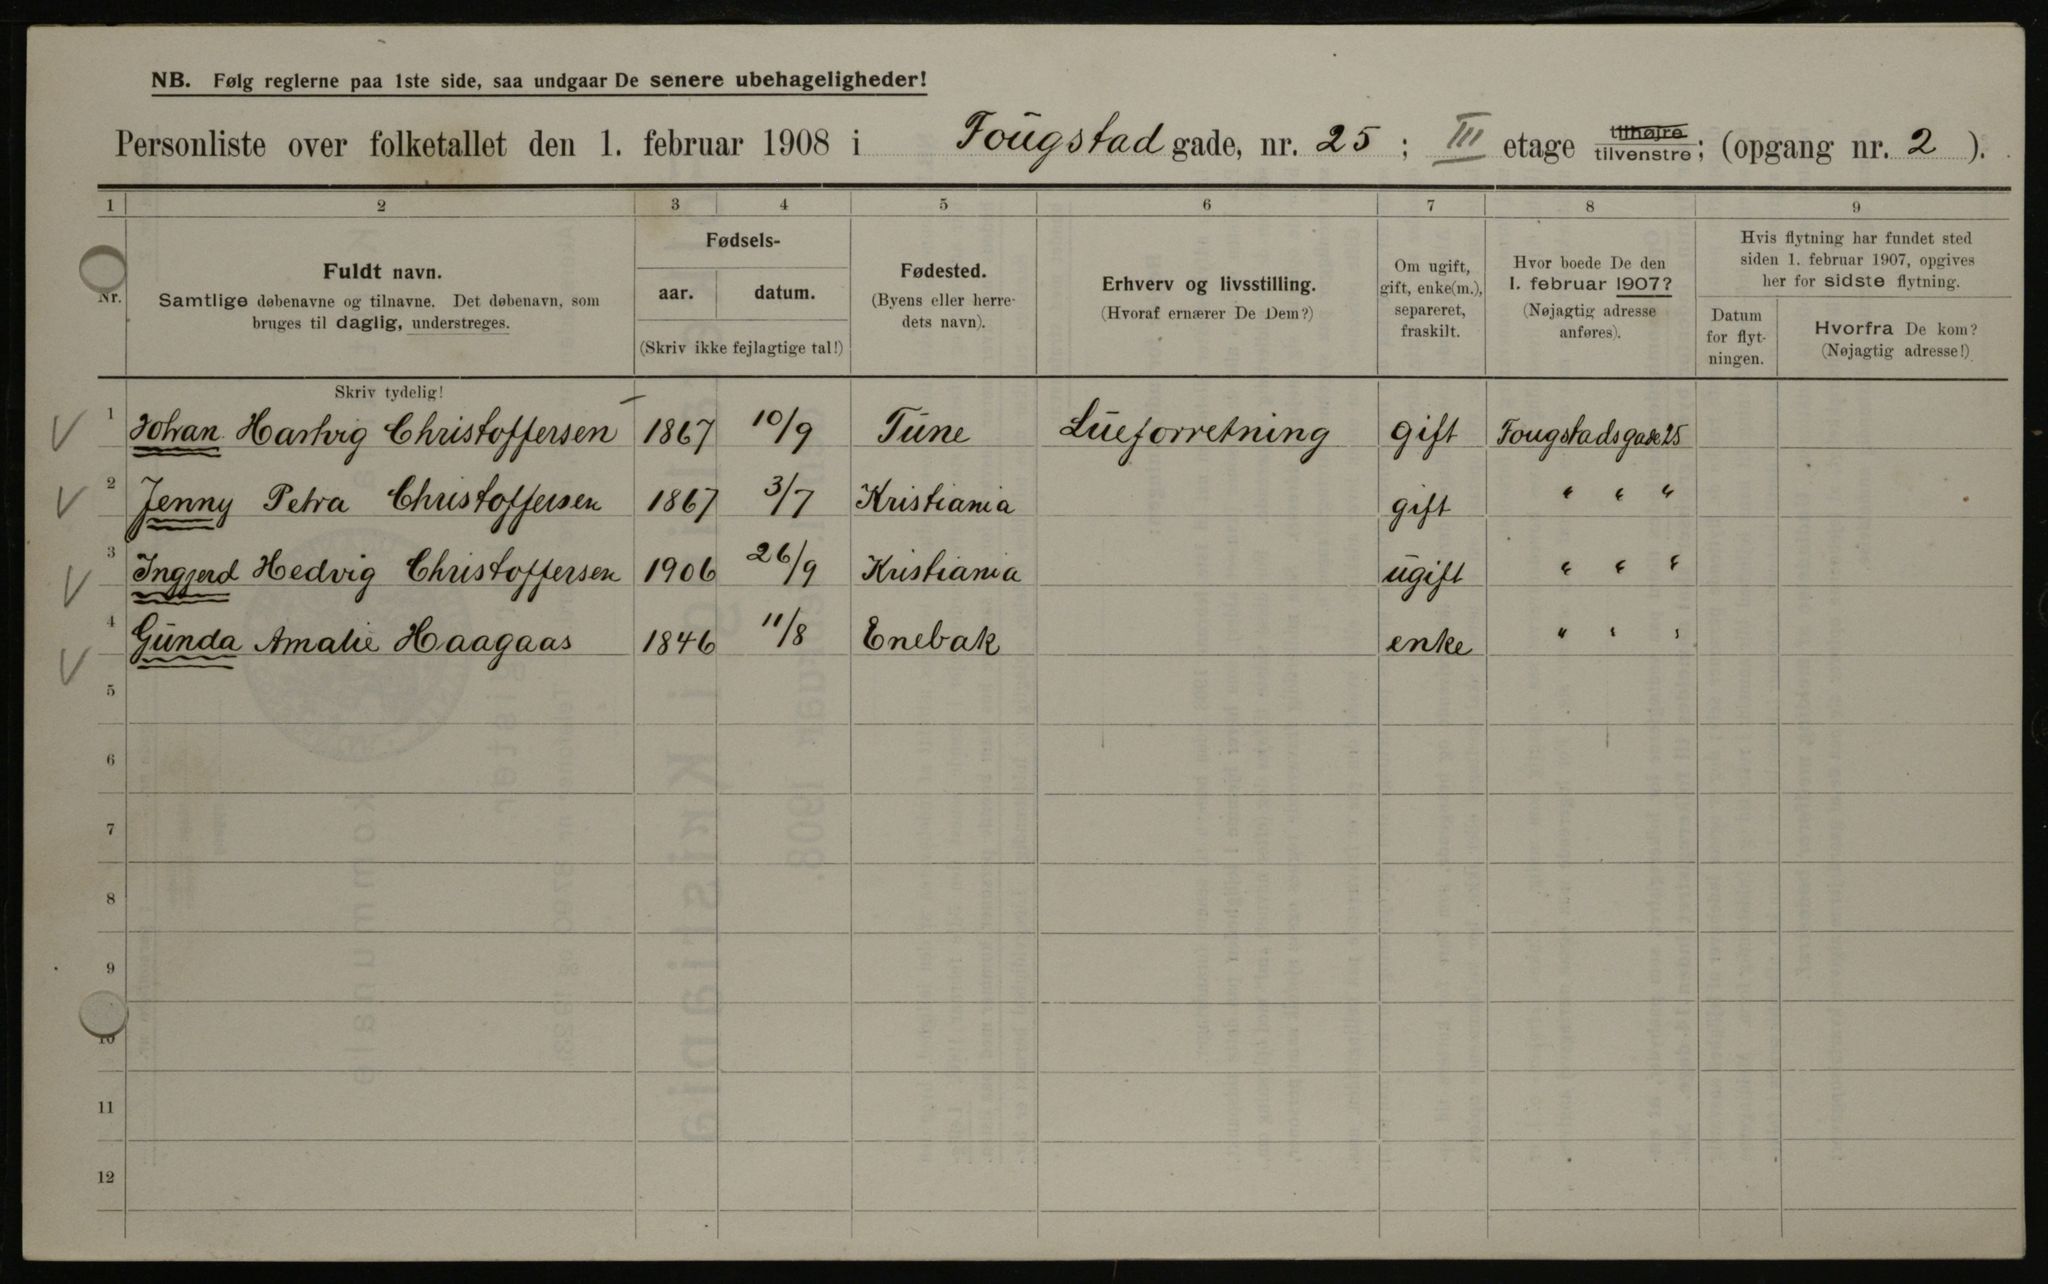 NB. Følg reglerne paa 1ste side, saa undgaar De senere ubehageligheder!
Personliste over folketallet den 1. februar 1908 i Fougstad gade, nr. 25 ; III etage tilhøjre tilvenstre; (opgang nr. 2 ).
1 2 3 4 5 6 7 8 9
Nr.
Fuldt navn.
Samtlige døbenavne og tilnavne. Det døbenavn, som
bruges til daglig, understreges.
Fødsels-
aar. datum.
(Skriv ikke fejlagtige tal!)
Fødested.
(Byens eller herre-
dets navn).
Erhverv og livsstilling.
(Hvoraf ernærer De Dem?)
Om ugift,
gift, enke(m.),
separeret,
fraskilt.
Hvor boede De den
1. februar 1907?
(Nøjagtig adresse
anføres).
Hvis flytning har fundet sted
siden 1. februar 1907, opgives
her for sidste flytning.
Datum
for flyt-
ningen.
Hvorfra De kom?
(Nøjagtig adresse!)
Skriv tydelig!
1 Johan Hartvig Christoffersen 1867 10/9 Tune Lueforretning gift Fougstadsgade 25
2 Jenny Petra Christoffersen 1867 3/7 Kristiania gift " " "
3 Ingjerd Hedvig Christoffersen 1906 26/9 Kristiania ugift " " "
4 Gunda Amalie Haagaas 1846 11/8 Enebak enke " " "
5
6
7
8
9
10
11
12